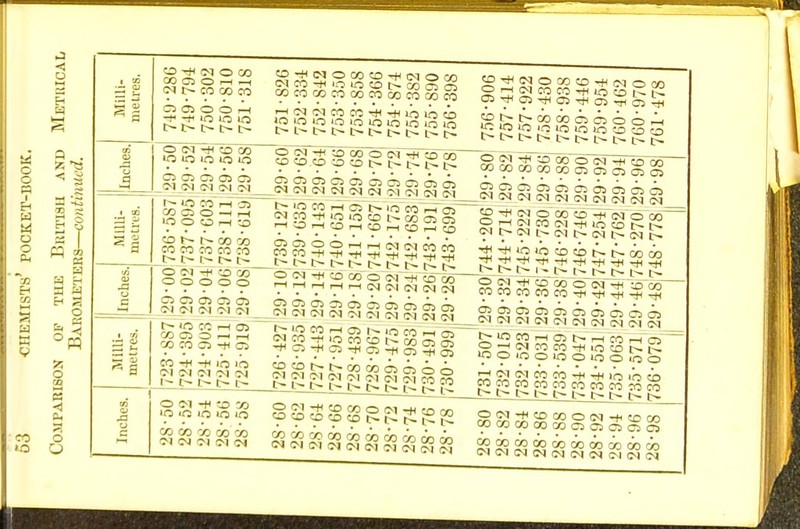 53 CHEMISTS' POCKET-BOOK.
COMPARISON OF THE BRITISH AND METRICAL
BAROMETERS—continued.
Inches. Milli-metres. Inches. Milli-metres. Inches. Milli-metres.
28·50 723·887 29·00 736·587 29·50 749·286
28·52 724·395 29·02 737·095 29·52 749·794
28·54 724·903 29·04 737·603 29·54 750·302
28·56 725·411 29·06 738·111 29·56 750·810
28·58 725·919 29·08 738·619 29·58 751·318
28·60 726·427 29·10 739·127 29·60 751·826
28·62 726·935 29·12 739·635 29·62 752·334
28·64 727·443 29·14 740·143 29·64 752·842
28·66 727·951 29·16 740·651 29·66 753·350
28·68 728·439 29·18 741·159 29·68 753·858
28·70 728·967 29·20 741·667 29·70 754·366
28·72 729·475 29·22 742·175 29·72 754·874
28·74 729·983 29·24 742·683 29·74 755·382
28·76 730·491 29·26 743·191 29·76 755·890
28·78 730·999 29·28 743·699 29·78 756·398
28·80 731·507 29·30 744·206 29·80 756·906
28·82 732·015 29·32 744·714 29·82 757·414
28·84 732·523 29·34 745·222 29·84 757·922
28·86 733·031 29·36 745·730 29·86 758·430
28·88 733·539 29·38 746·228 29·88 758·938
28·90 734·047 29·40 746·746 29·90 759·446
28·92 734·551 29·42 747·254 29·92 759·954
28·94 735·063 29·44 747·762 29·94 760·462
28·96 735·571 29·46 748·270 29·96 760·970
28·98 736·079 29·48 748·778 29·98 761·478